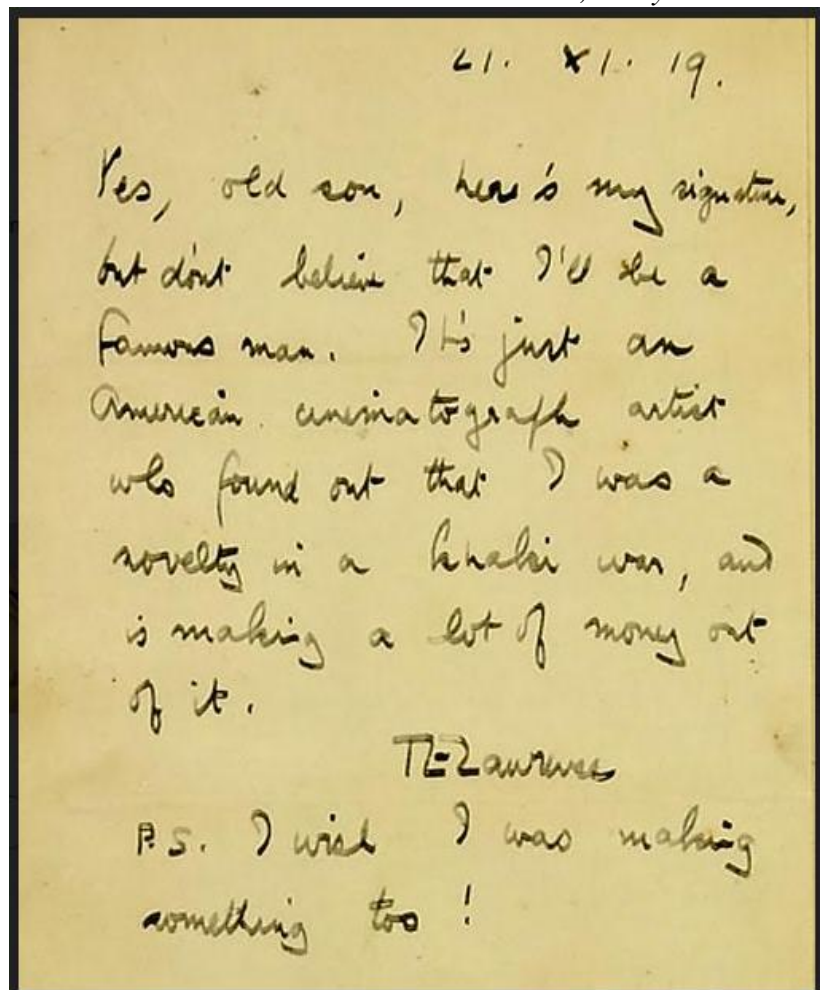 21. XI. 19.
Yes, old son, here's my signature,
but dón't believe that I'll be a
famous man. It's just an
American cinematograph artist
who found out that I was a
novelty in a khaki war, and
is making a lot of money out
of it.
TE Lawrence
P.S. I wish I was making
something too!